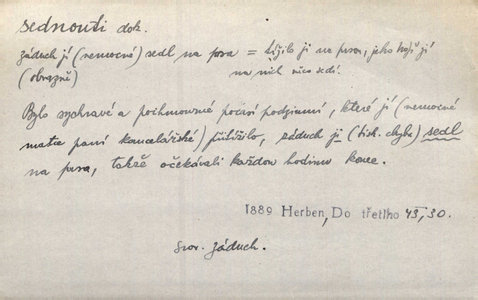 sednouti dok.
záduch jí (nemocné) sedl na prsa = tížilo ji na prsou, jako když jí
(obrazně) na nich něco sedí.
Bylo sychravé a pochmourné počasí podzimní, které jí (nemocné
matce paní kancelářské) přitížilo, záduch ji (tisk. chyba) sedl
na prsa, takže očekávali každou hodinu konce.
1889 Herben, Do třetího 43, 30.
srov. záduch.